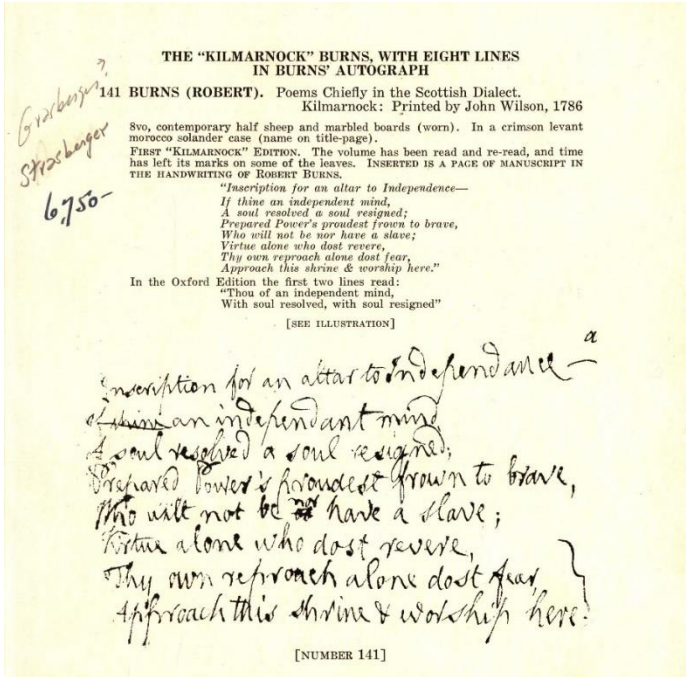 THE “KILMARNOCK” BURNS, WITH EIGHT LINES
IN BURNS’ AUTOGRAPH
Grasberger?
Strasberger
6,750-
141 BURNS (ROBERT). Poems Chiefly in the Scottish Dialect.
Kilmarnock: Printed by John Wilson, 1786
8vo, contemporary half sheep and marbled boards (worn). In a crimson levant
morocco solander case (name on title-page).
FIRST “KILMARNOCK” EDITION. The volume has been read and re-read, and time
has left its marks on some of the leaves. INSERTED IS A PAGE OF MANUSCRIPT IN
THE HANDWRITING OF ROBERT BURNS.
“Inscription for an altar to Independence—
If thine an independent mind,
A soul resolved a soul resigned;
Prepared Power's proudest frown to brave,
Who will not be nor have a slave;
Virtue alone who dost revere,
Thy own reproach alone dost fear,
Approach this shrine & worship here.”
In the Oxford Edition the first two lines read:
“Thou of an independent mind,
With soul resolved, with soul resigned”
[SEE ILLUSTRATION]
a
Inscription for an altar to Independance —
If thine an independant mind
A soul resolved a soul resigned;
Prepared Power's proudest frown to brave,
Who wilt not be nor have a slave;
Virtue alone who dost revere,
Thy own reproach alone dost fear,
Approach this shrine & worship here.
[NUMBER 141]